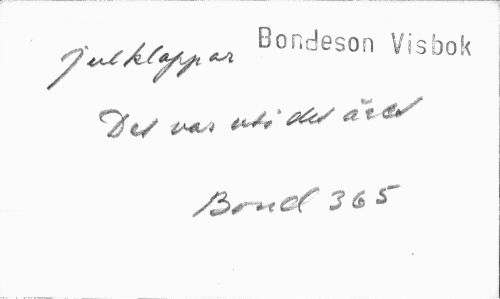 julklappar Bondeson Visbok
Det var uti det året
Bond 365